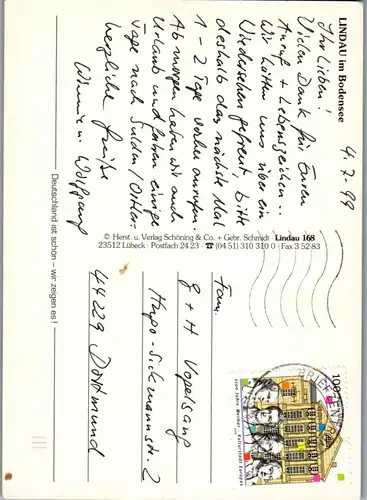 LINDAU im Bodensee
4.7.99
Ihr Lieben!
Vielen Dank für Euren
Anruf + Lebenszeichen..
Wir hätten uns über ein
Wiedersehen gefreut, bitte
deshalb das nächste Mal
1-2 Tage vorher anrufen.
Ab morgen haben wir auch
Urlaub und fahren einige
Tage nach Sulden/Ortler-
herzliche Grüße
Winnie u. Wolfgang
Deutschland ist schön – wir zeigen es!
© Herst. u. Verlag Schöning & Co. + Gebr. Schmidt · Lindau 168
23512 Lübeck · Postfach 24 23 · ☎ (04 51) 310 310 0 · Fax 3 52 83
Fam.
G + H Vogelsang
Hugo-Sickmannstr. 2
44229 Dortmund
BRIEFZEN
100
1100 Jahre Weimar
Kulturstadt Europas